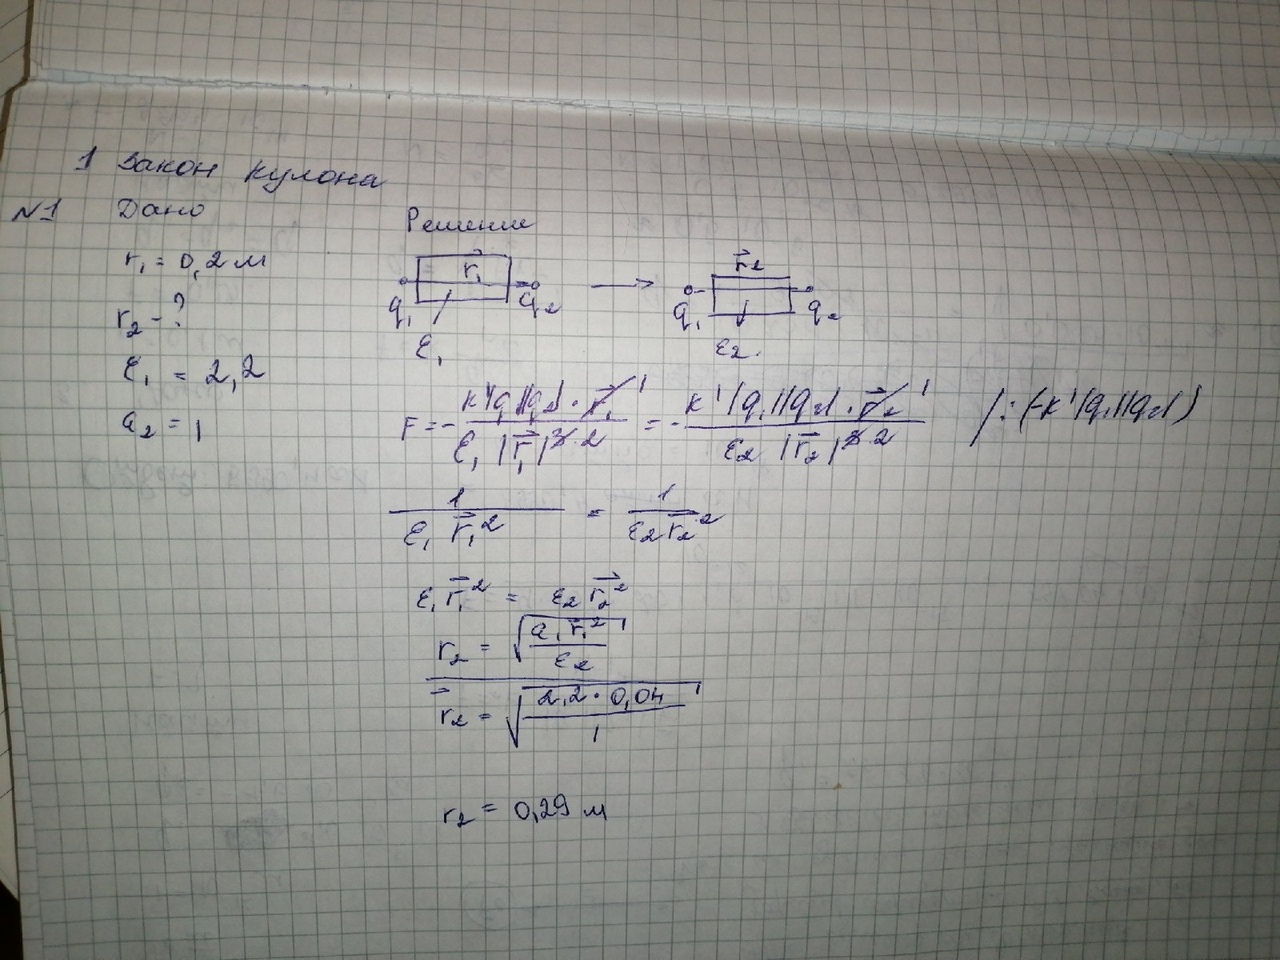 1 Закон Кулона
№1 Дано
Решение
r₁ = 0,2 м
r₂ - ?
ε₁ = 2,2
ε₂ = 1
r⃗₁
q₁ q₂
ε₁
r⃗₂
q₁ q₂
ε₂.
F = - k'|q₁||q₂|·r⃗₁ / ε₁ |r⃗₁|³ ² = - k'|q₁||q₂|·r⃗₂ / ε₂ |r⃗₂|³ ² /:(-k'|q₁||q₂|)
1 / ε₁ r⃗₁² = 1 / ε₂ r⃗₂²
ε₁ r⃗₁² = ε₂ r⃗₂²
r₂ = √(ε₁ r⃗₁² / ε₂)
r⃗₂ = √(2,2 · 0,04 / 1)
r₂ = 0,29 м